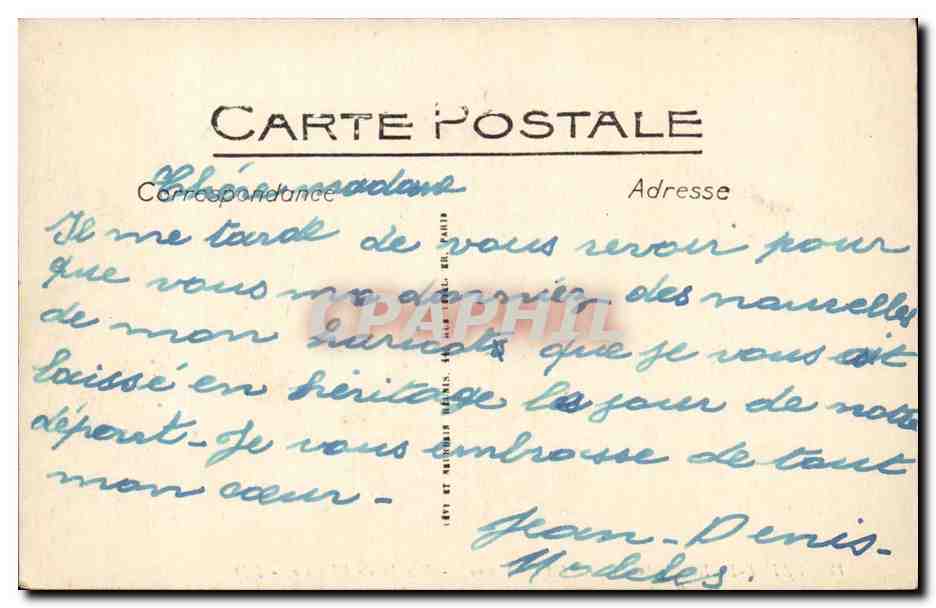 CARTE POSTALE
Correspondance
Adresse
Chère madame
Il me tarde de vous revoir pour
que vous me donniez des nouvelles
de mon haricot que je vous ait
laissé en héritage le jour de notre
départ - Je vous embrasse de tout
mon cœur -
Jean - Denis -
LÉVY ET NEURDEIN RÉUNIS, 44, RUE LETELLIER, PARIS
CPAPHIL